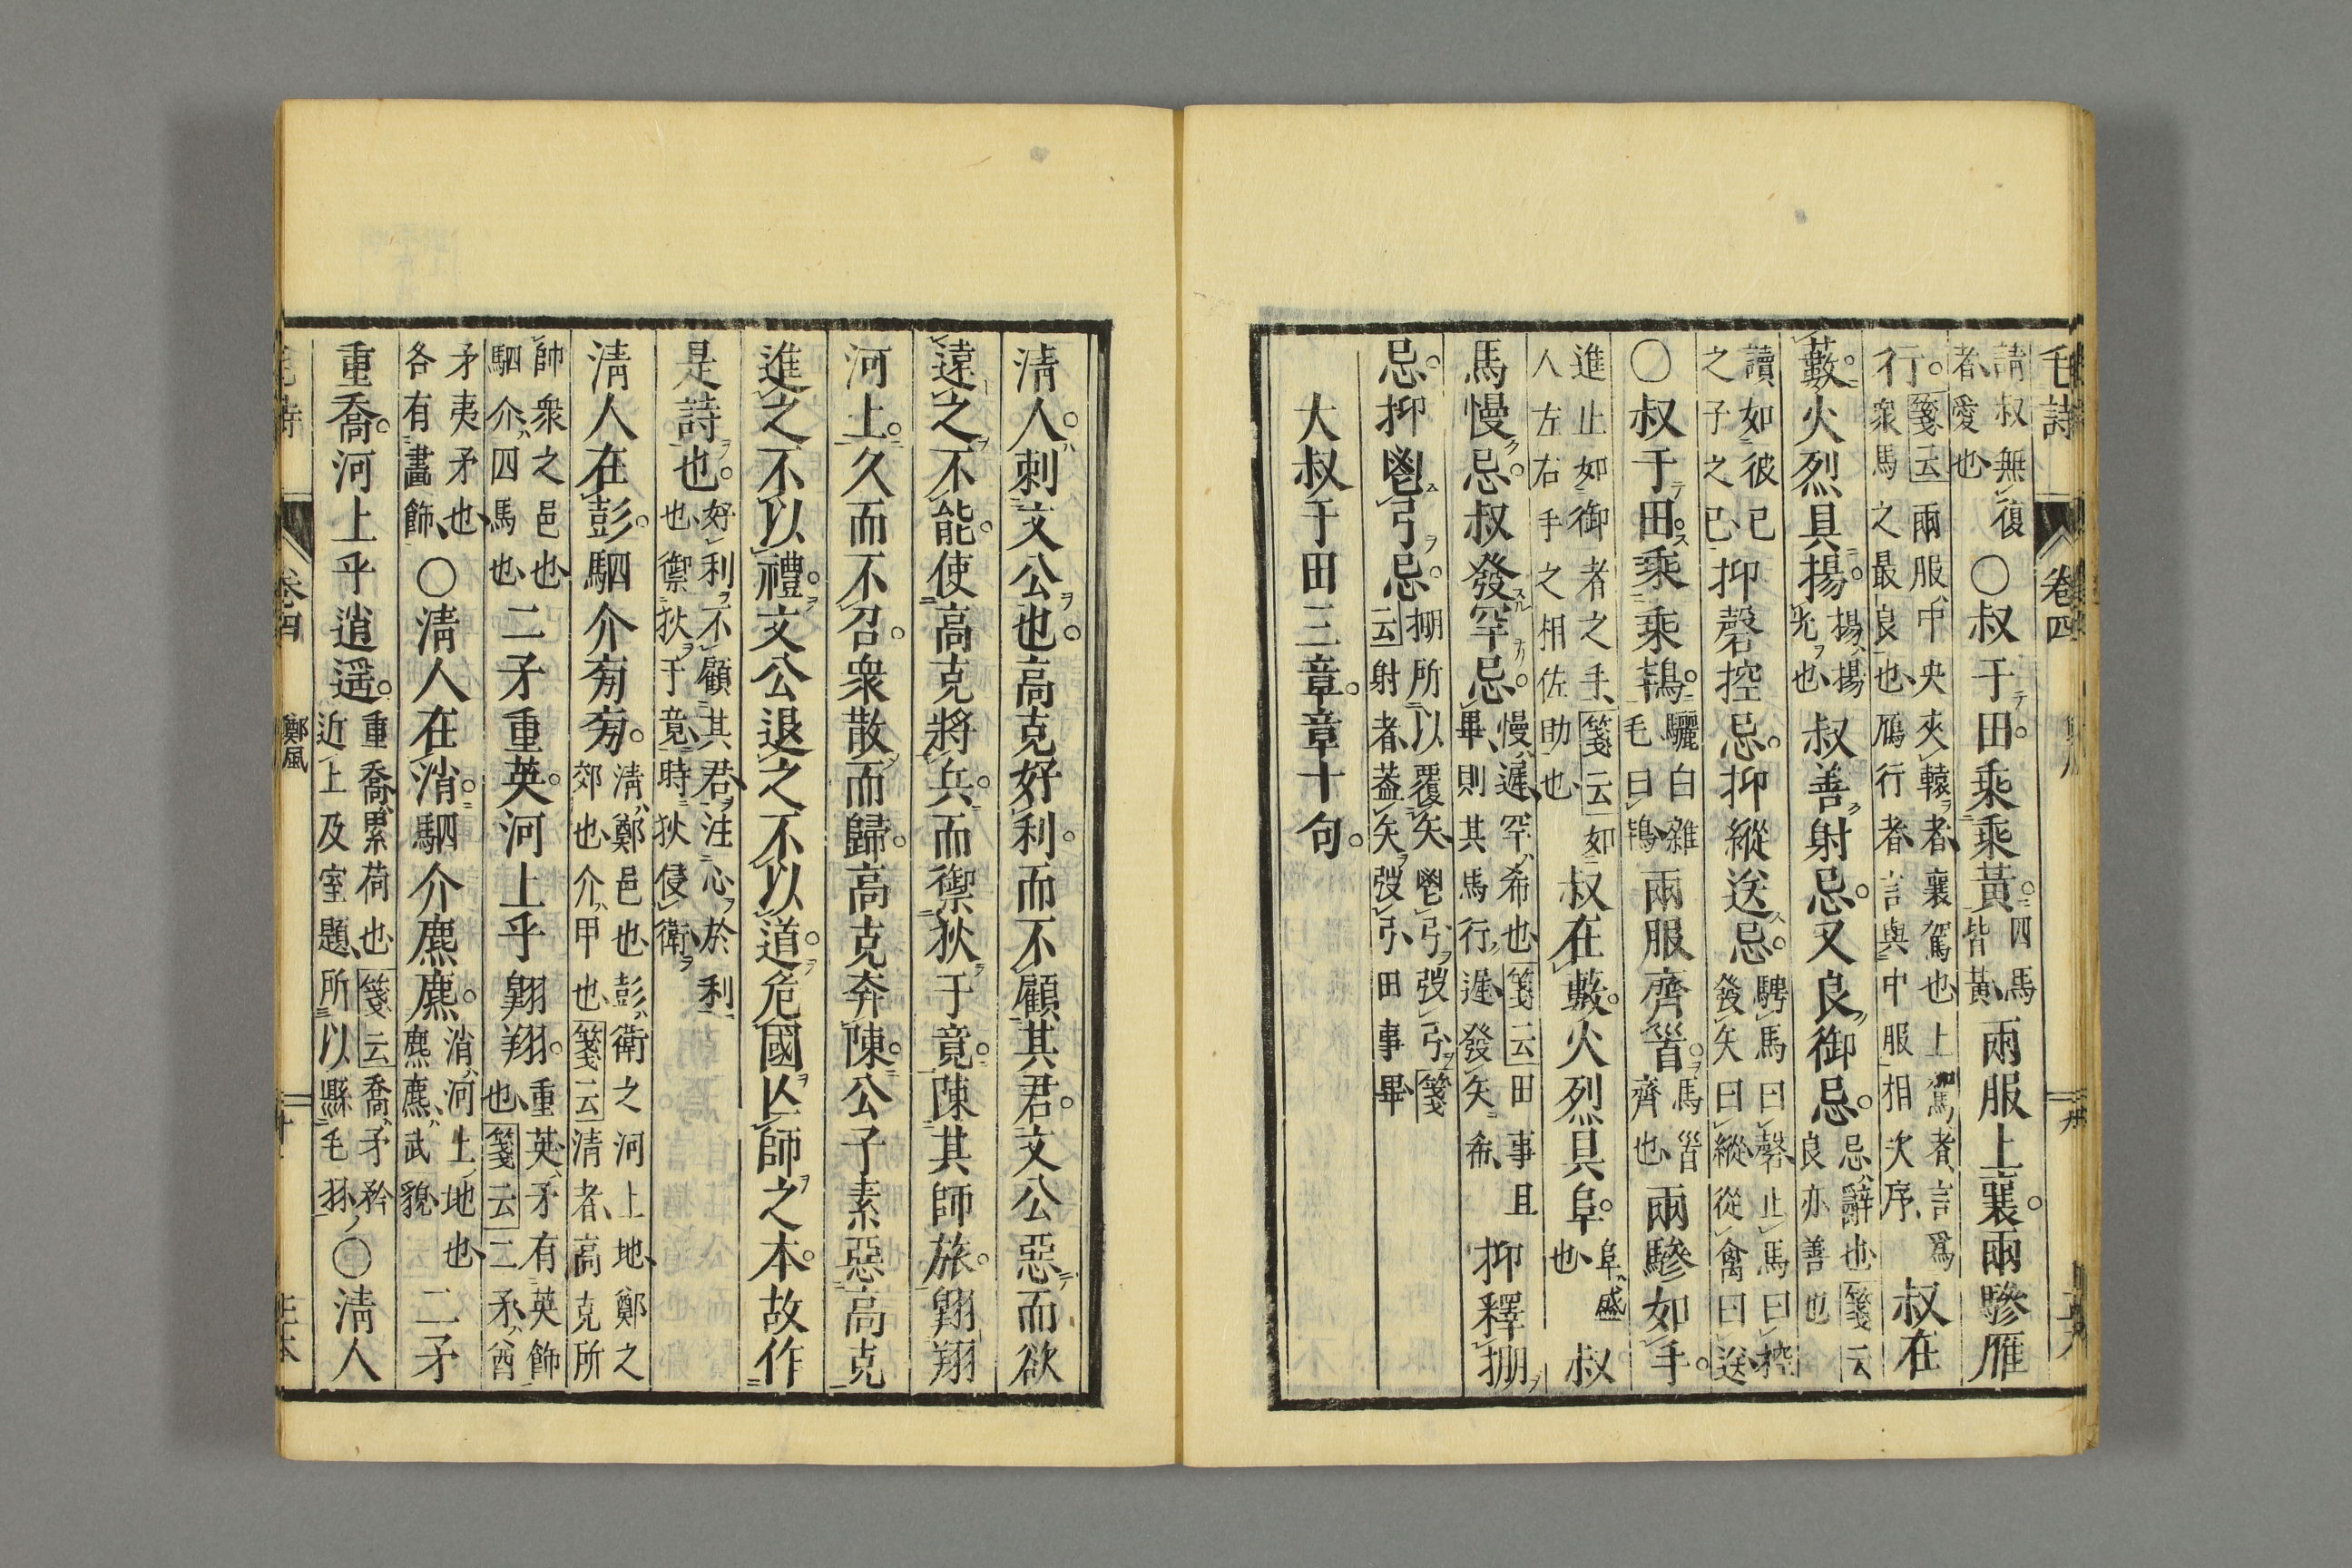 毛詩 卷四
請叔無復者愛也○叔于田。乘乘黃。四馬皆黃兩服上襄。兩驂雁
行。箋云兩服中央夾轅者襄駕也上駕者言爲衆馬之最良也鴈行者言與中服相次序叔在
藪。火烈具揚。揚揚光也叔善射忌。又良御忌。忌辭也箋云良亦善也
讀如彼已之子之已抑磬控忌。抑縱送忌。騁馬曰磬止馬曰控發矢曰縱從禽曰送
○叔于田。乘乘鴇。驪白雜毛曰鴇兩服齊首。馬首齊也兩驂如手。
進止如御者之手箋云如人左右手之相佐助也叔在藪。火烈具阜。阜盛也叔
馬慢忌。叔發罕忌。慢遲罕希也箋云田事且畢則其馬行遲發矢希抑釋掤
忌。抑鬯弓忌。掤所以覆矢鬯弓弢弓箋云射者蓋矢弢弓田事畢
大叔于田三章。章十句。
淸人。刺文公也。高克好利。而不顧其君。文公惡而欲
遠之不能。使高克將兵。而禦狄于竟。陳其師旅。翺翔
河上。久而不召。衆散而歸。高克奔陳。公子素惡高克
進之不以禮。文公退之不以道。危國亾師之本。故作
是詩也。好利不顧其君注心於利也禦狄于竟時狄侵衛
淸人在彭。駟介旁旁。淸鄭邑也彭衛之河上地鄭之郊也介甲也箋云淸者高克所
帥衆之邑也駟介四馬也二矛重英。河上乎翺翔。重英矛有英飾也箋云二矛酋
矛夷矛也各有畫飾○淸人在消。駟介麃麃。消河上地也麃麃武貌二矛
重喬。河上乎逍遥。重喬累荷也箋云喬矛矜近上及室題所以縣毛羽○淸人
鄭風